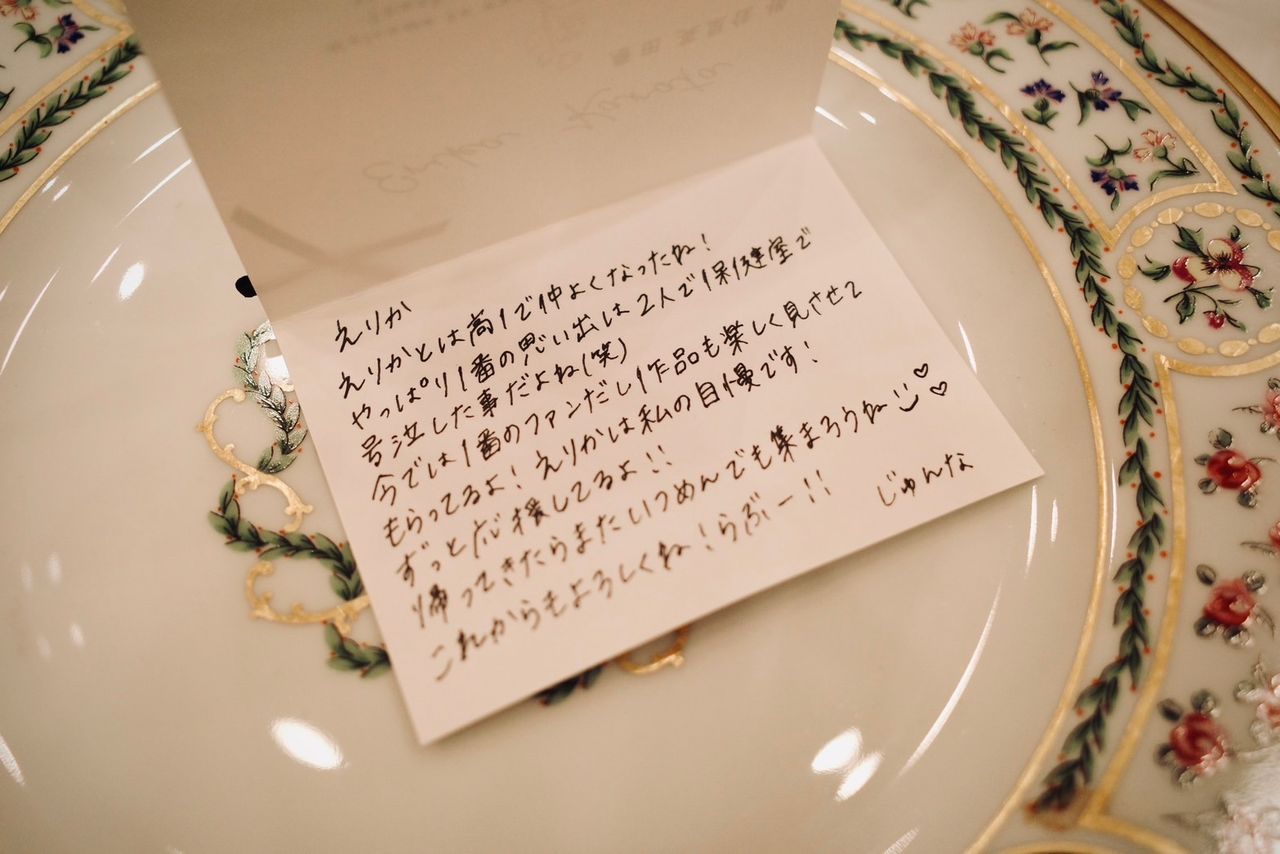 えりか
えりかとは高1で仲よくなったね!
やっぱり1番の思い出は2人で保健室で
号泣した事だよね(笑)
今では1番のファンだし作品も楽しく見させて
もらってるよ!えりかは私の自慢です!
ずっと応援してるよ!!
帰ってきたらまたいつめんでも集まろうね
これからもよろしくね!らぶー!!
じゅんな